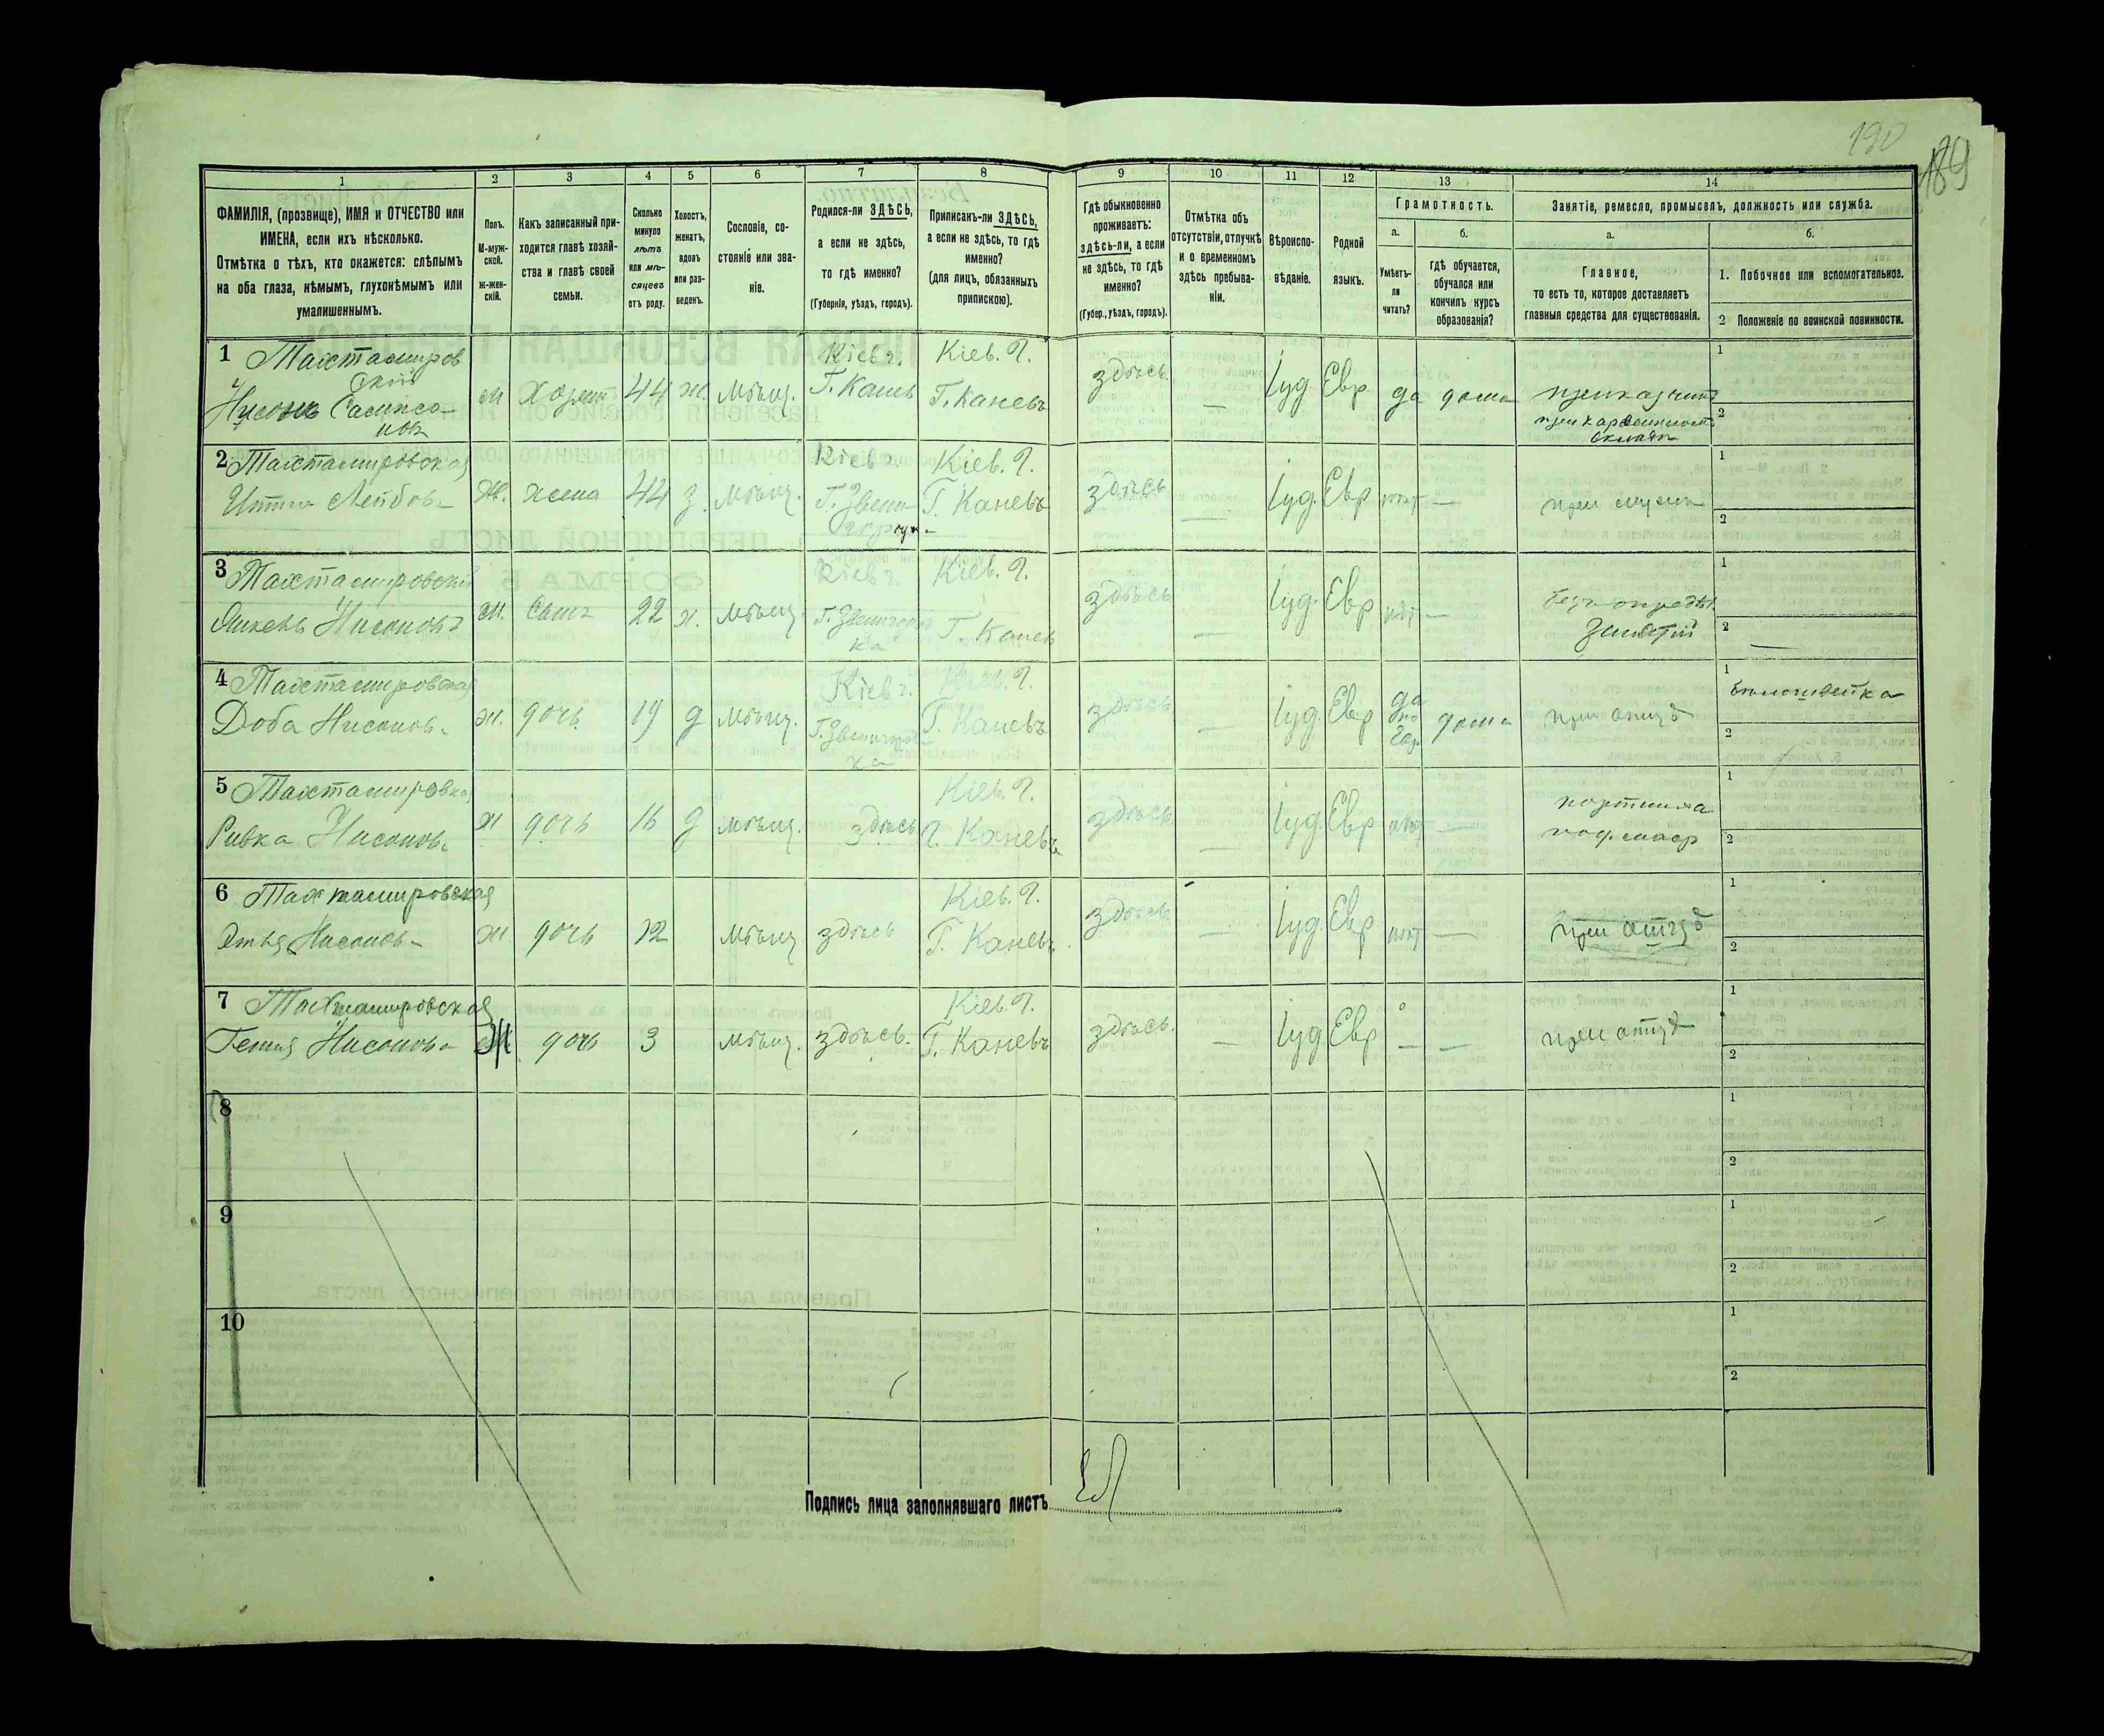 190
189
1
2
3
4
5
6
7
8
9
10
11
12
13
14
ФАМИЛІЯ, (прозвище), ИМЯ и ОТЧЕСТВО или
ИМЕНА, если ихъ нѣсколько.
Отмѣтка о тѣхъ, кто окажется: слѣпымъ
на оба глаза, нѣмымъ, глухонѣмымъ или
умалишеннымъ.
Полъ.
М-муж-
ской.
Ж-жен-
скій.
Какъ записанный при-
ходится главѣ хозяй-
ства и главѣ своей
семьи.
Сколько
минуло
лѣтъ
или мѣ-
сяцевъ
отъ роду.
Холостъ,
женатъ,
вдовъ
или раз-
веденъ.
Сословіе, со-
стояніе или зва-
ніе.
Родился-ли ЗДѢСЬ,
а если не здѣсь,
то гдѣ именно?
(Губернія, уѣздъ, городъ).
Приписанъ-ли ЗДѢСЬ,
а если не здѣсь, то гдѣ
именно?
(для лицъ, обязанныхъ
припискою).
Гдѣ обыкновенно
проживаетъ:
здѣсь-ли, а если
не здѣсь, то гдѣ
именно?
(Губер., уѣздъ, городъ).
Отмѣтка объ
отсутствіи, отлучкѣ
и о временномъ
здѣсь пребыва-
ніи.
Вѣроиспо-
вѣданіе.
Родной
языкъ.
Грамотность.
а.
Умѣетъ-
ли
читать?
б.
гдѣ обучается,
обучался или
кончилъ курсъ
образованія?
Занятіе, ремесло, промыселъ, должность или служба.
а.
Главное,
то есть то, которое доставляетъ
главныя средства для существованія.
б.
1. Побочное или вспомогательное.
2 Положеніе по воинской повинности.
1 Тахтамиров
ский
Нисонъ Самсо-
новъ
м Хозяин 44 ж. мѣщ. Кіев г. Г. Канев Кіев. г. Г. Каневъ
здѣсь — Іуд. Евр да дома приказчик
при
складѣ
1
2
2 Тахтамировская
Итта Лейбов-
ж. жена 44 з. мѣщ. Кіев г. Г. Звени-
городк- Кіев. г. Г. Каневъ
здѣсь — Іуд. Евр нѣт — при мужѣ
1
2
3 Тахтамировский
Нисоновъ
м. Сынъ 22 х. мѣщ. Кіев г. Г. Звенигород
ка Кіев. г. Г. Канев
здѣсь — Іуд. Евр нѣт — без опредѣл
занятій
1
2 —
4 Тахтамировская
Доба Нисонов-
ж. дочь 19 д мѣщ. Кіев г. Г. Звенигород-
ка Кіев. г. Г. Каневъ
здѣсь — Іуд. Евр да
по
Евр дома при отцѣ
1 бѣлошвейка
2
5 Тахтамировка
Ривка Нисонов-
ж дочь 16 д мѣщ. здѣсь Кіев. г. г. Каневъ
здѣсь — Іуд. Евр нѣт — портниха
1
2
6 Тахтамировская
Этья Нисонов-
ж дочь 12 мѣщ здѣсь Кіев. г. Г. Каневъ
здѣсь — Іуд. Евр нѣт — при отцѣ
1
2
7 Тахтамировская
Геня Нисонов-
Ж дочь 3 мѣщ. здѣсь. Кіев. г. Г. Каневъ
здѣсь. — Іуд Евр — — при отцѣ
1
2
8
1
2
9
1
2
10
1
2
Подпись лица заполнявшаго листъ